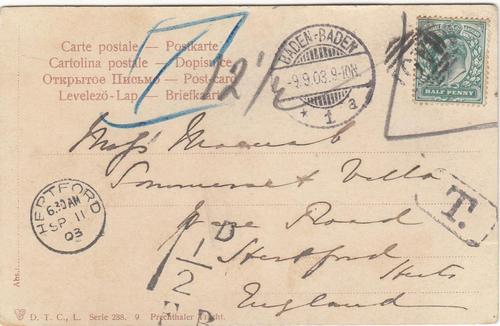 Carte postale — Postkarte
Cartolina postale — Dopisnice
Открытое Письмо — Post-card
Levelező-Lap — Briefkaart
12½
BADEN-BADEN
-9.9.03.9-10N.
* 1 a
HALF PENNY
Miss
Somerset Villa
Road
Hertford
Herts
England
HERTFORD
6.30AM
SP 11
03
T.
1/2 D
Abs.:
D. T. C., L. Serie 288. 9 Prechthaler Tracht.